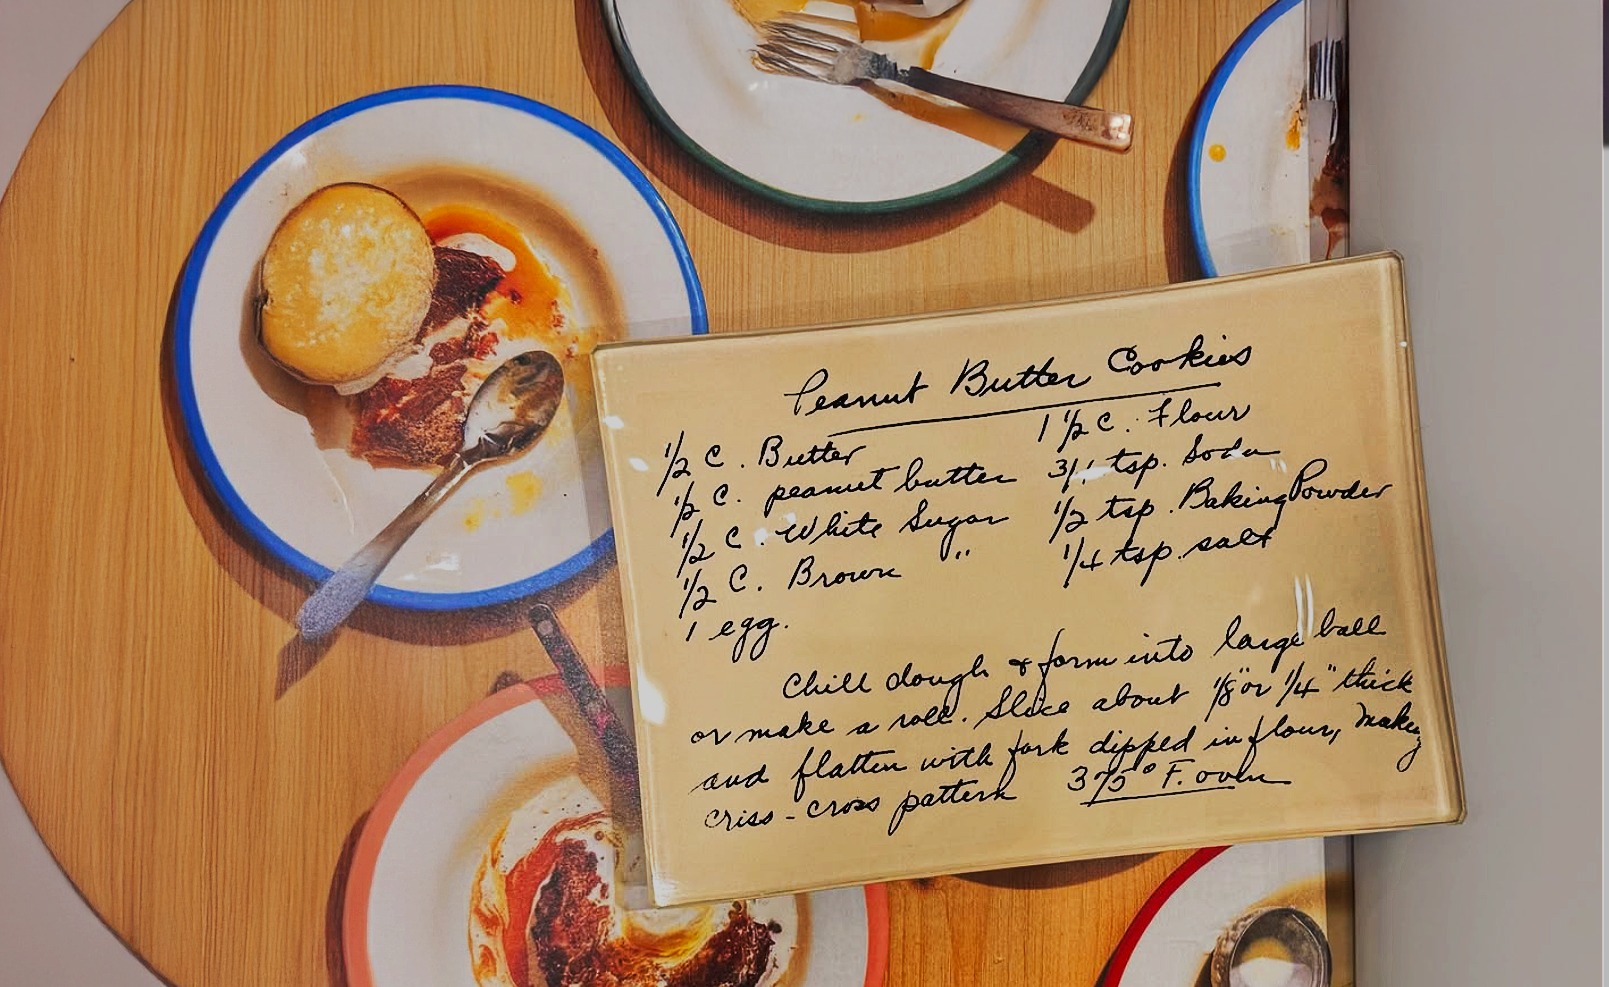 Peanut Butter Cookies
1/2 C. Butter
1/2 C. peanut butter
1/2 C. White Sugar
1/2 C. Brown "
1 egg.
1 1/2 C. Flour
tsp. Soda
1/2 tsp. Baking Powder
1/4 tsp. salt
Chill dough & form into large ball
or make a roll. Slice about 1/8" or 1/4" thick
and flatten with fork dipped in flour, making
criss-cross pattern 375° F. oven